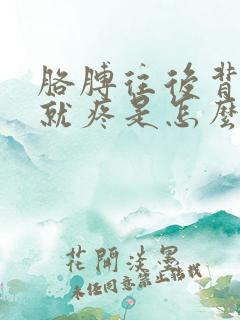 胳膊往后背
就疼是怎么
花開淡墨
未经同意禁止转载